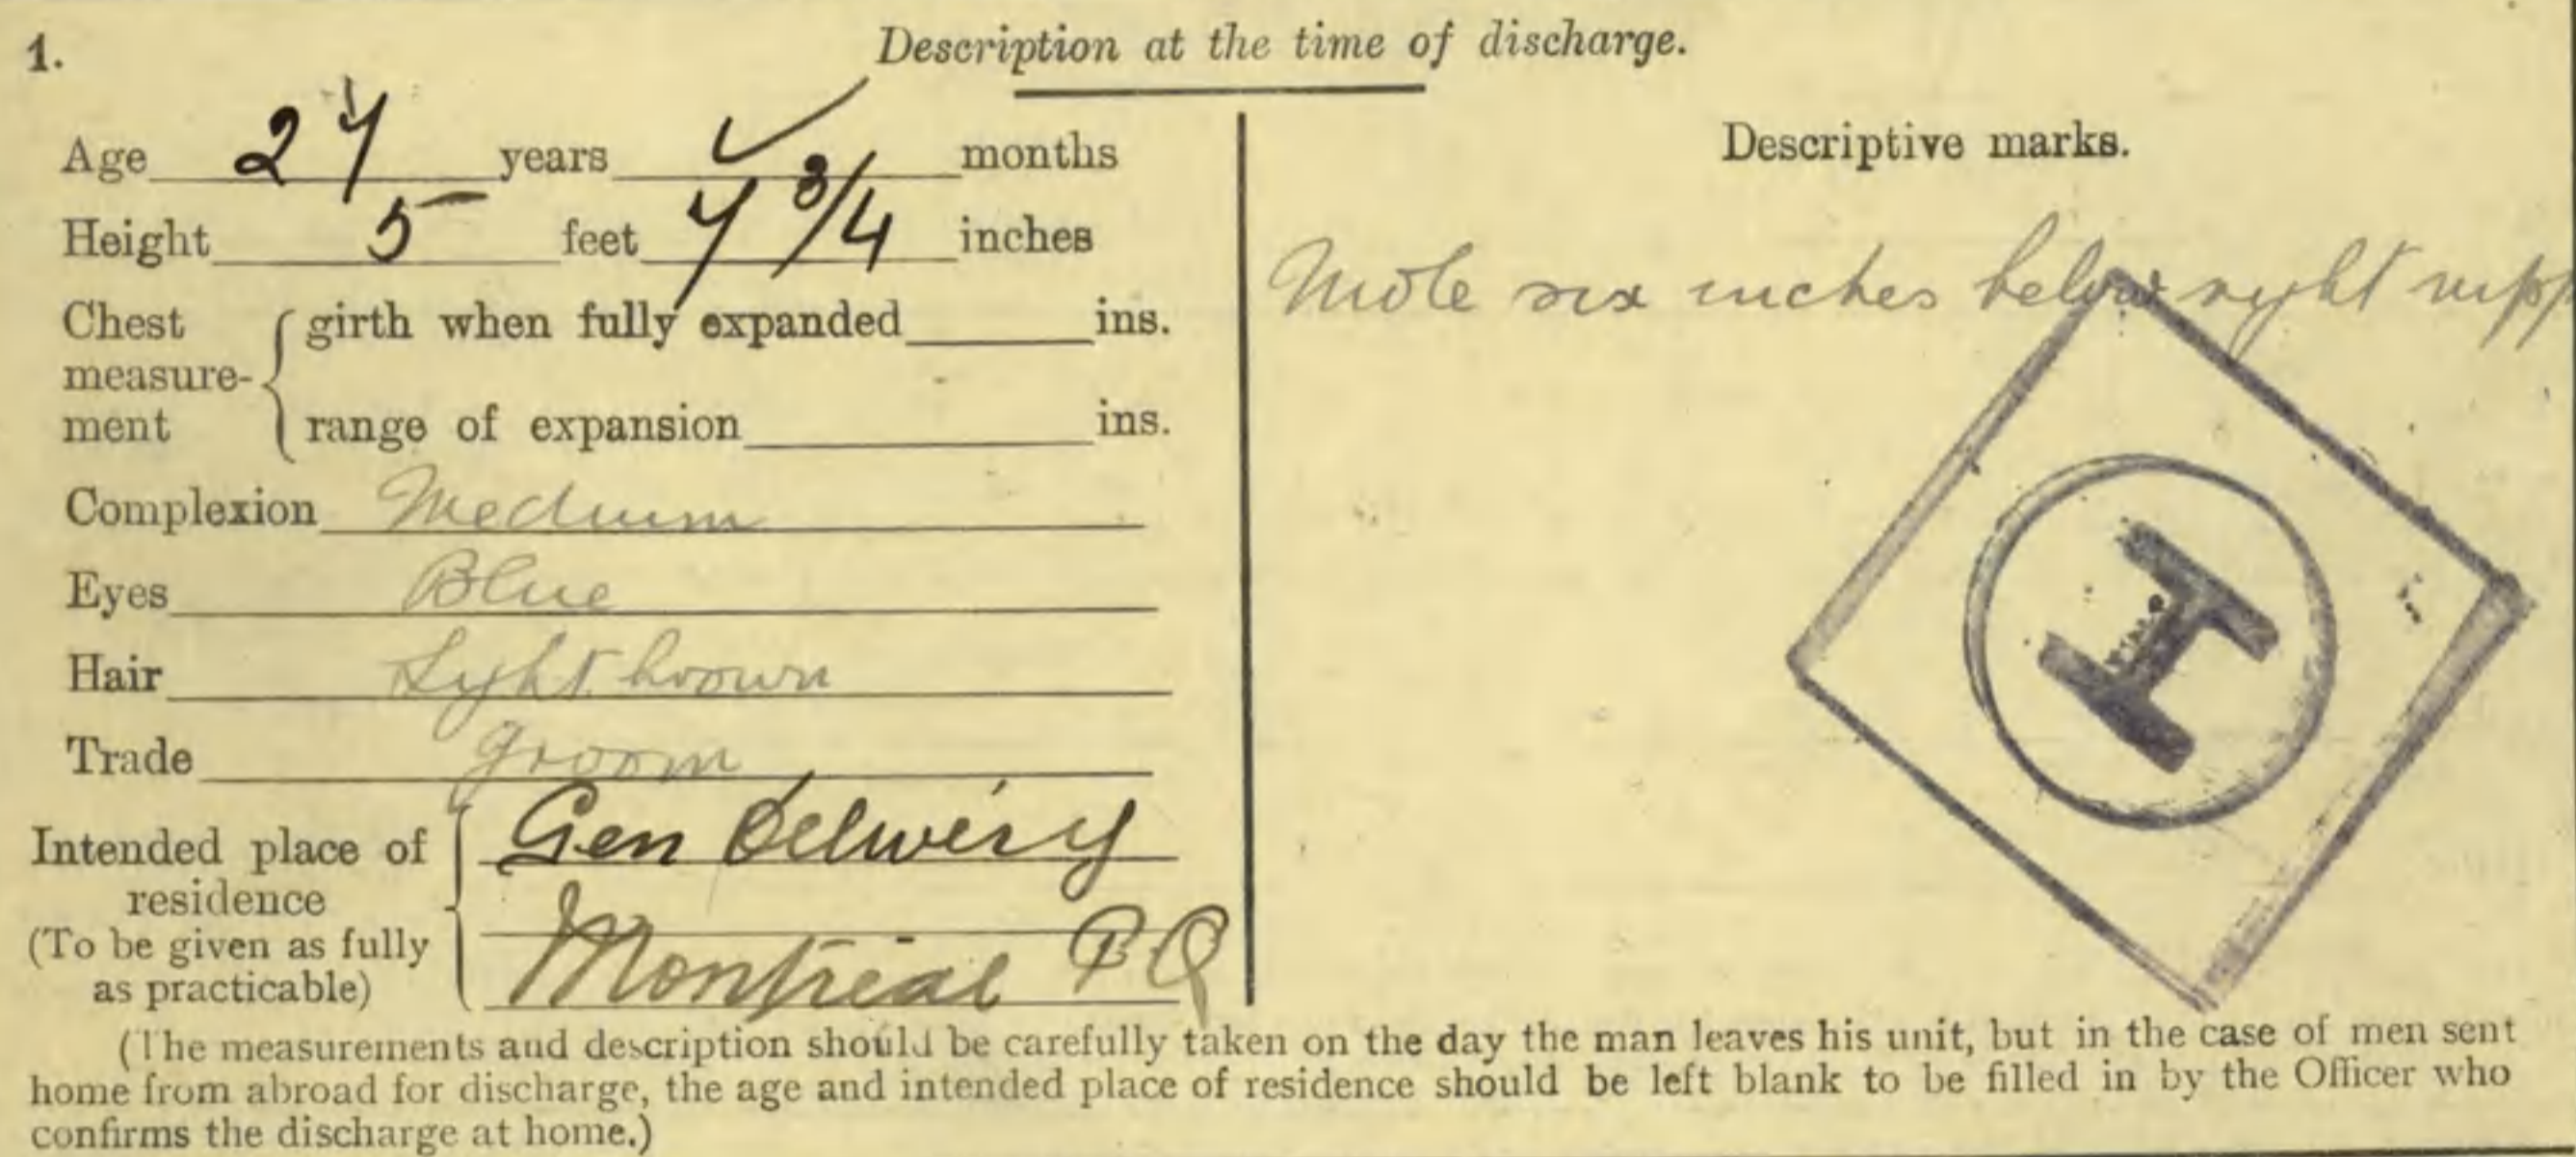 1. Description at the time of discharge.
Age 27 years ✓ months
Height 5 feet 7 3/4 inches
Chest measure-ment { girth when fully expanded ins.
range of expansion ins.
Complexion Medium
Eyes Blue
Hair Light brown
Trade Groom
Intended place of residence (To be given as fully as practicable) { Gen Delivery
Montreal PQ
Descriptive marks.
Mole six inches below right nipp
H
(The measurements and description should be carefully taken on the day the man leaves his unit, but in the case of men sent
home from abroad for discharge, the age and intended place of residence should be left blank to be filled in by the Officer who
confirms the discharge at home.)